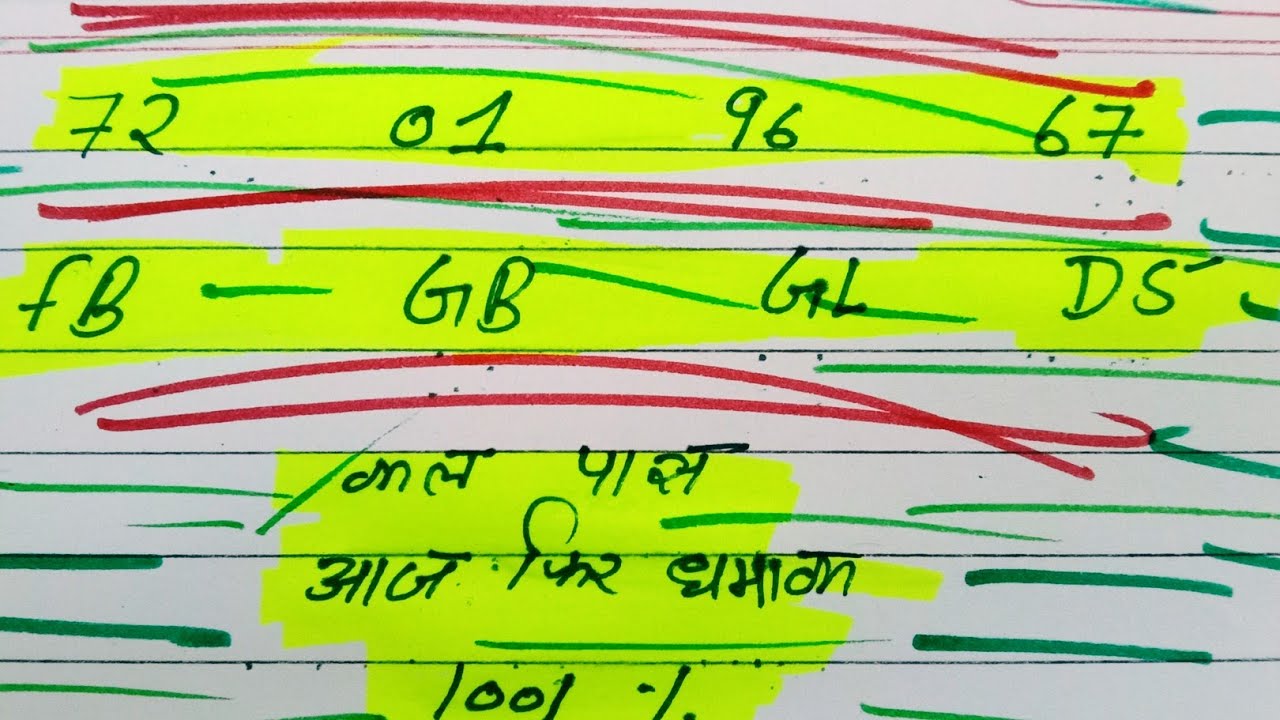 72 01 96 67
fB - GB GL DS
कल पास
आज फिर धमाका
1001 %